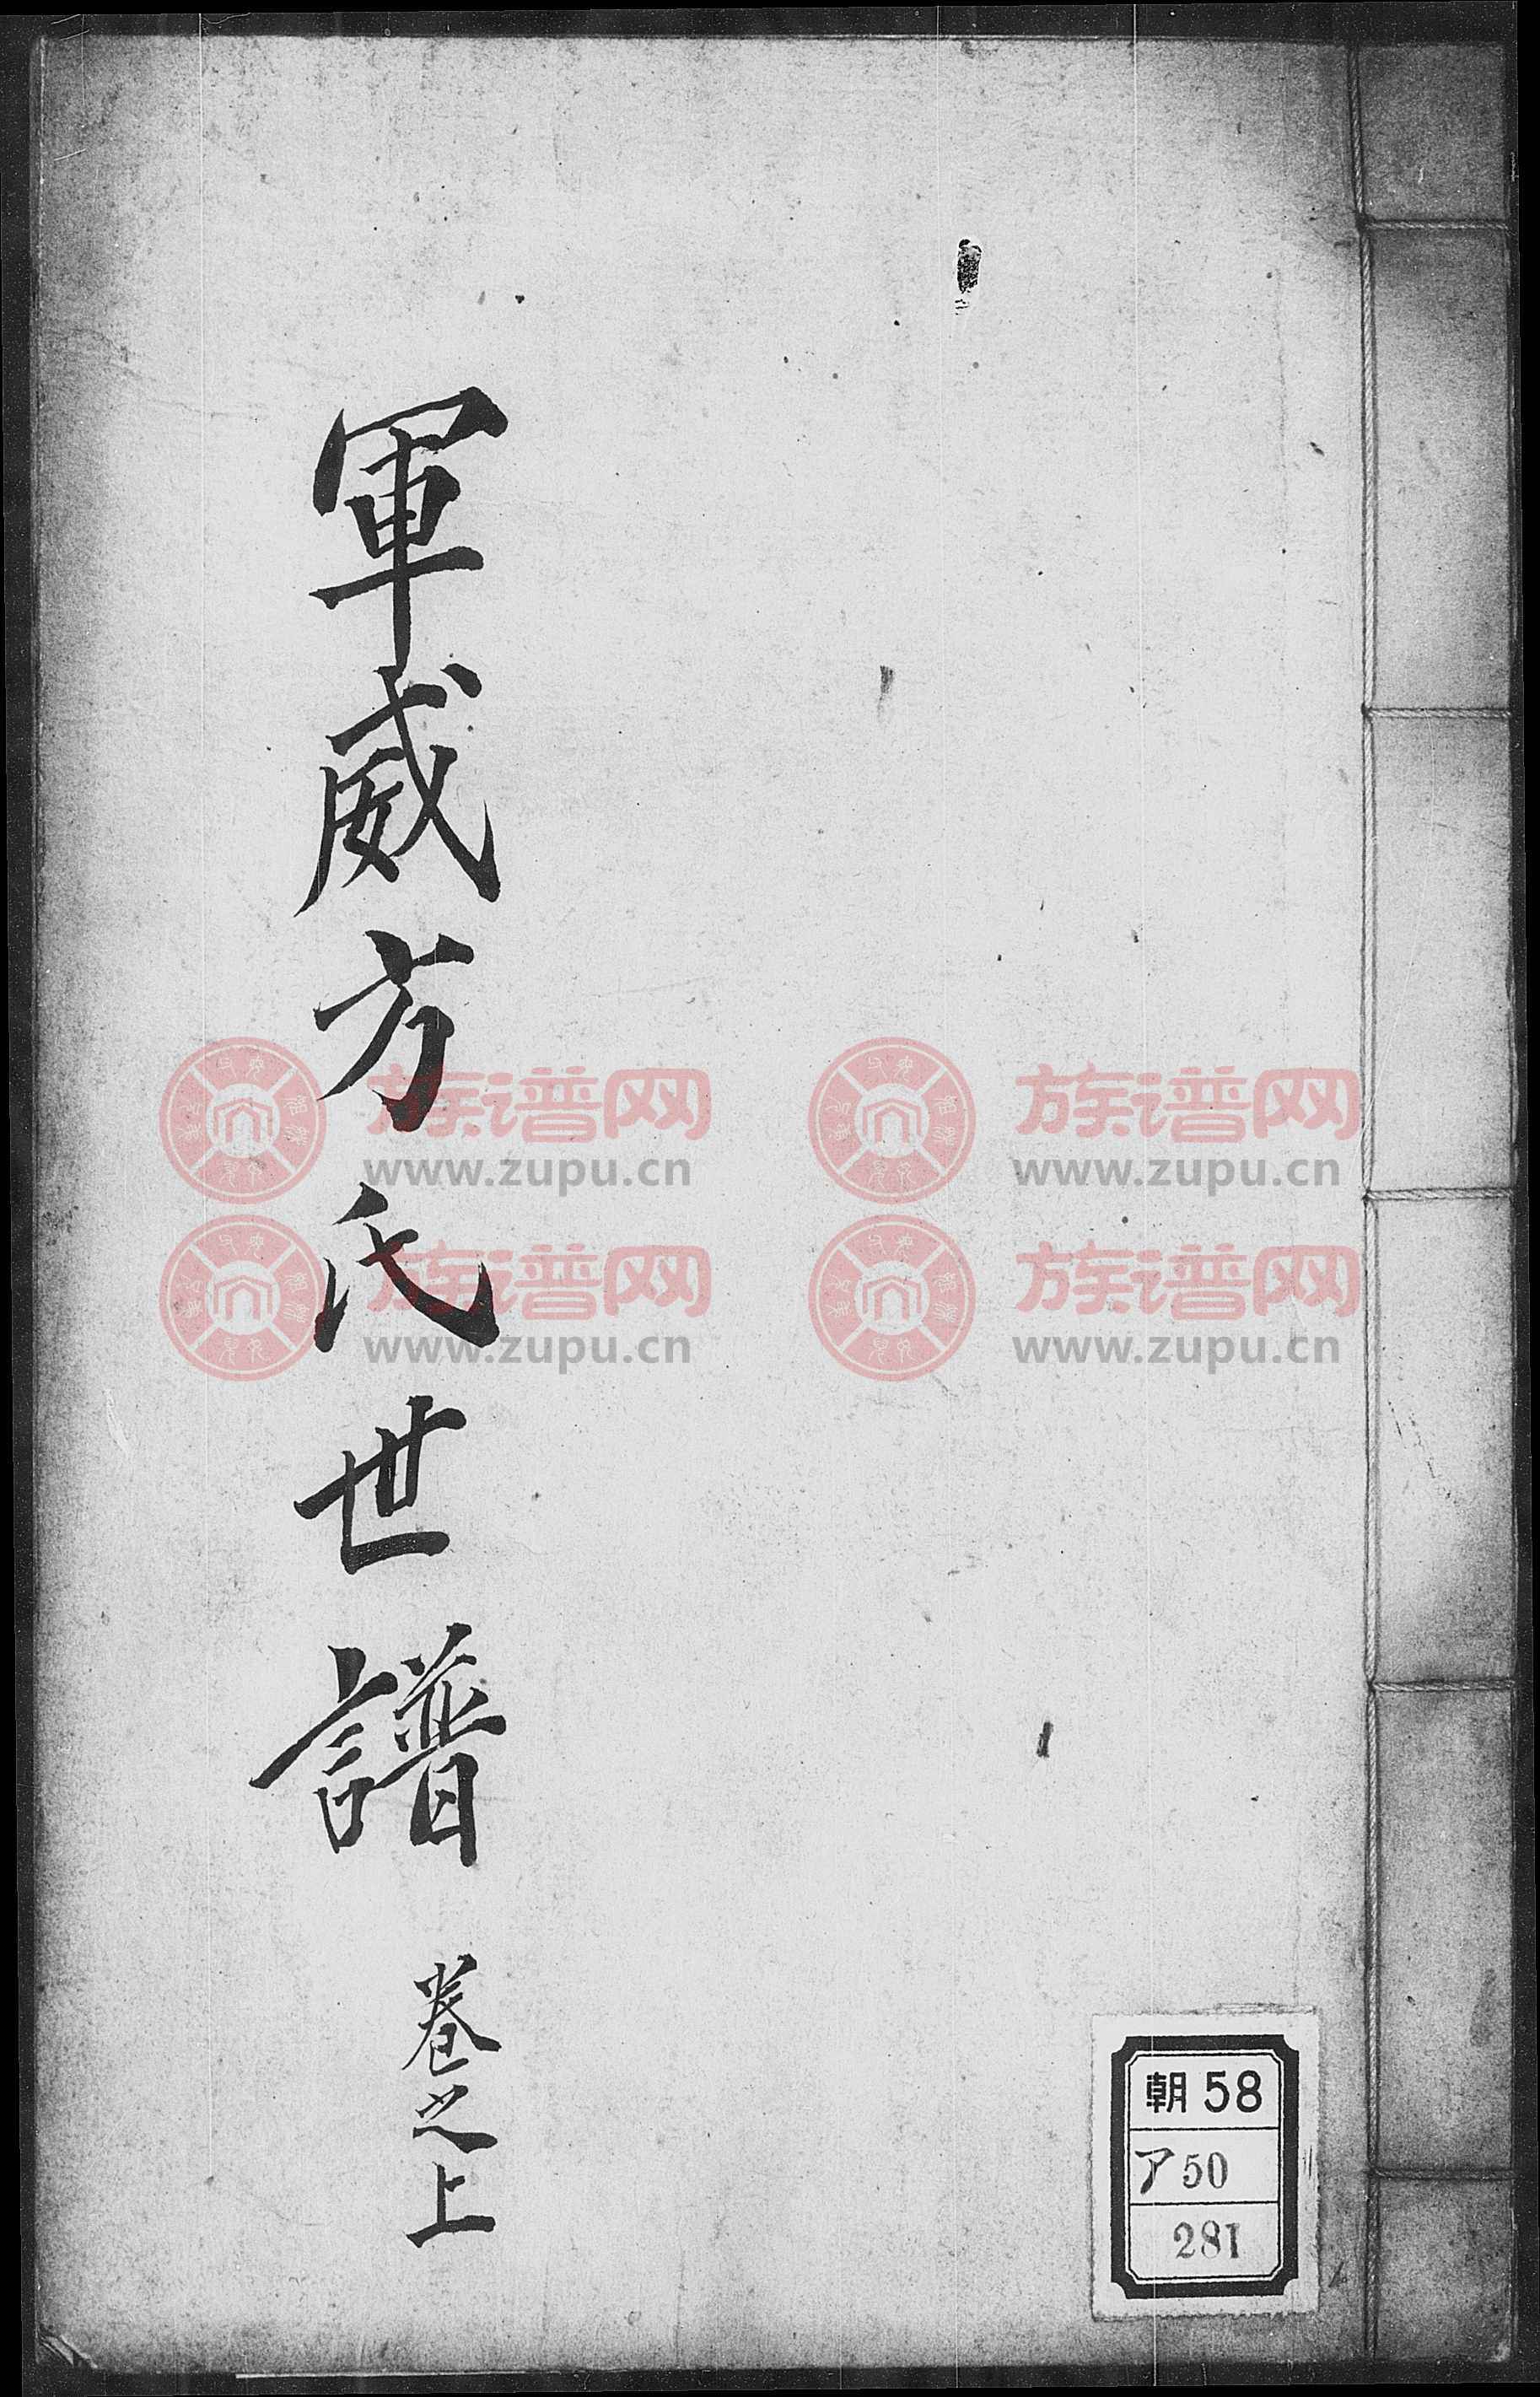 軍威方氏世譜
卷之上
族谱网
www.zupu.cn
族谱网
www.zupu.cn
族谱网
www.zupu.cn
族谱网
www.zupu.cn
朝58
ア50
281